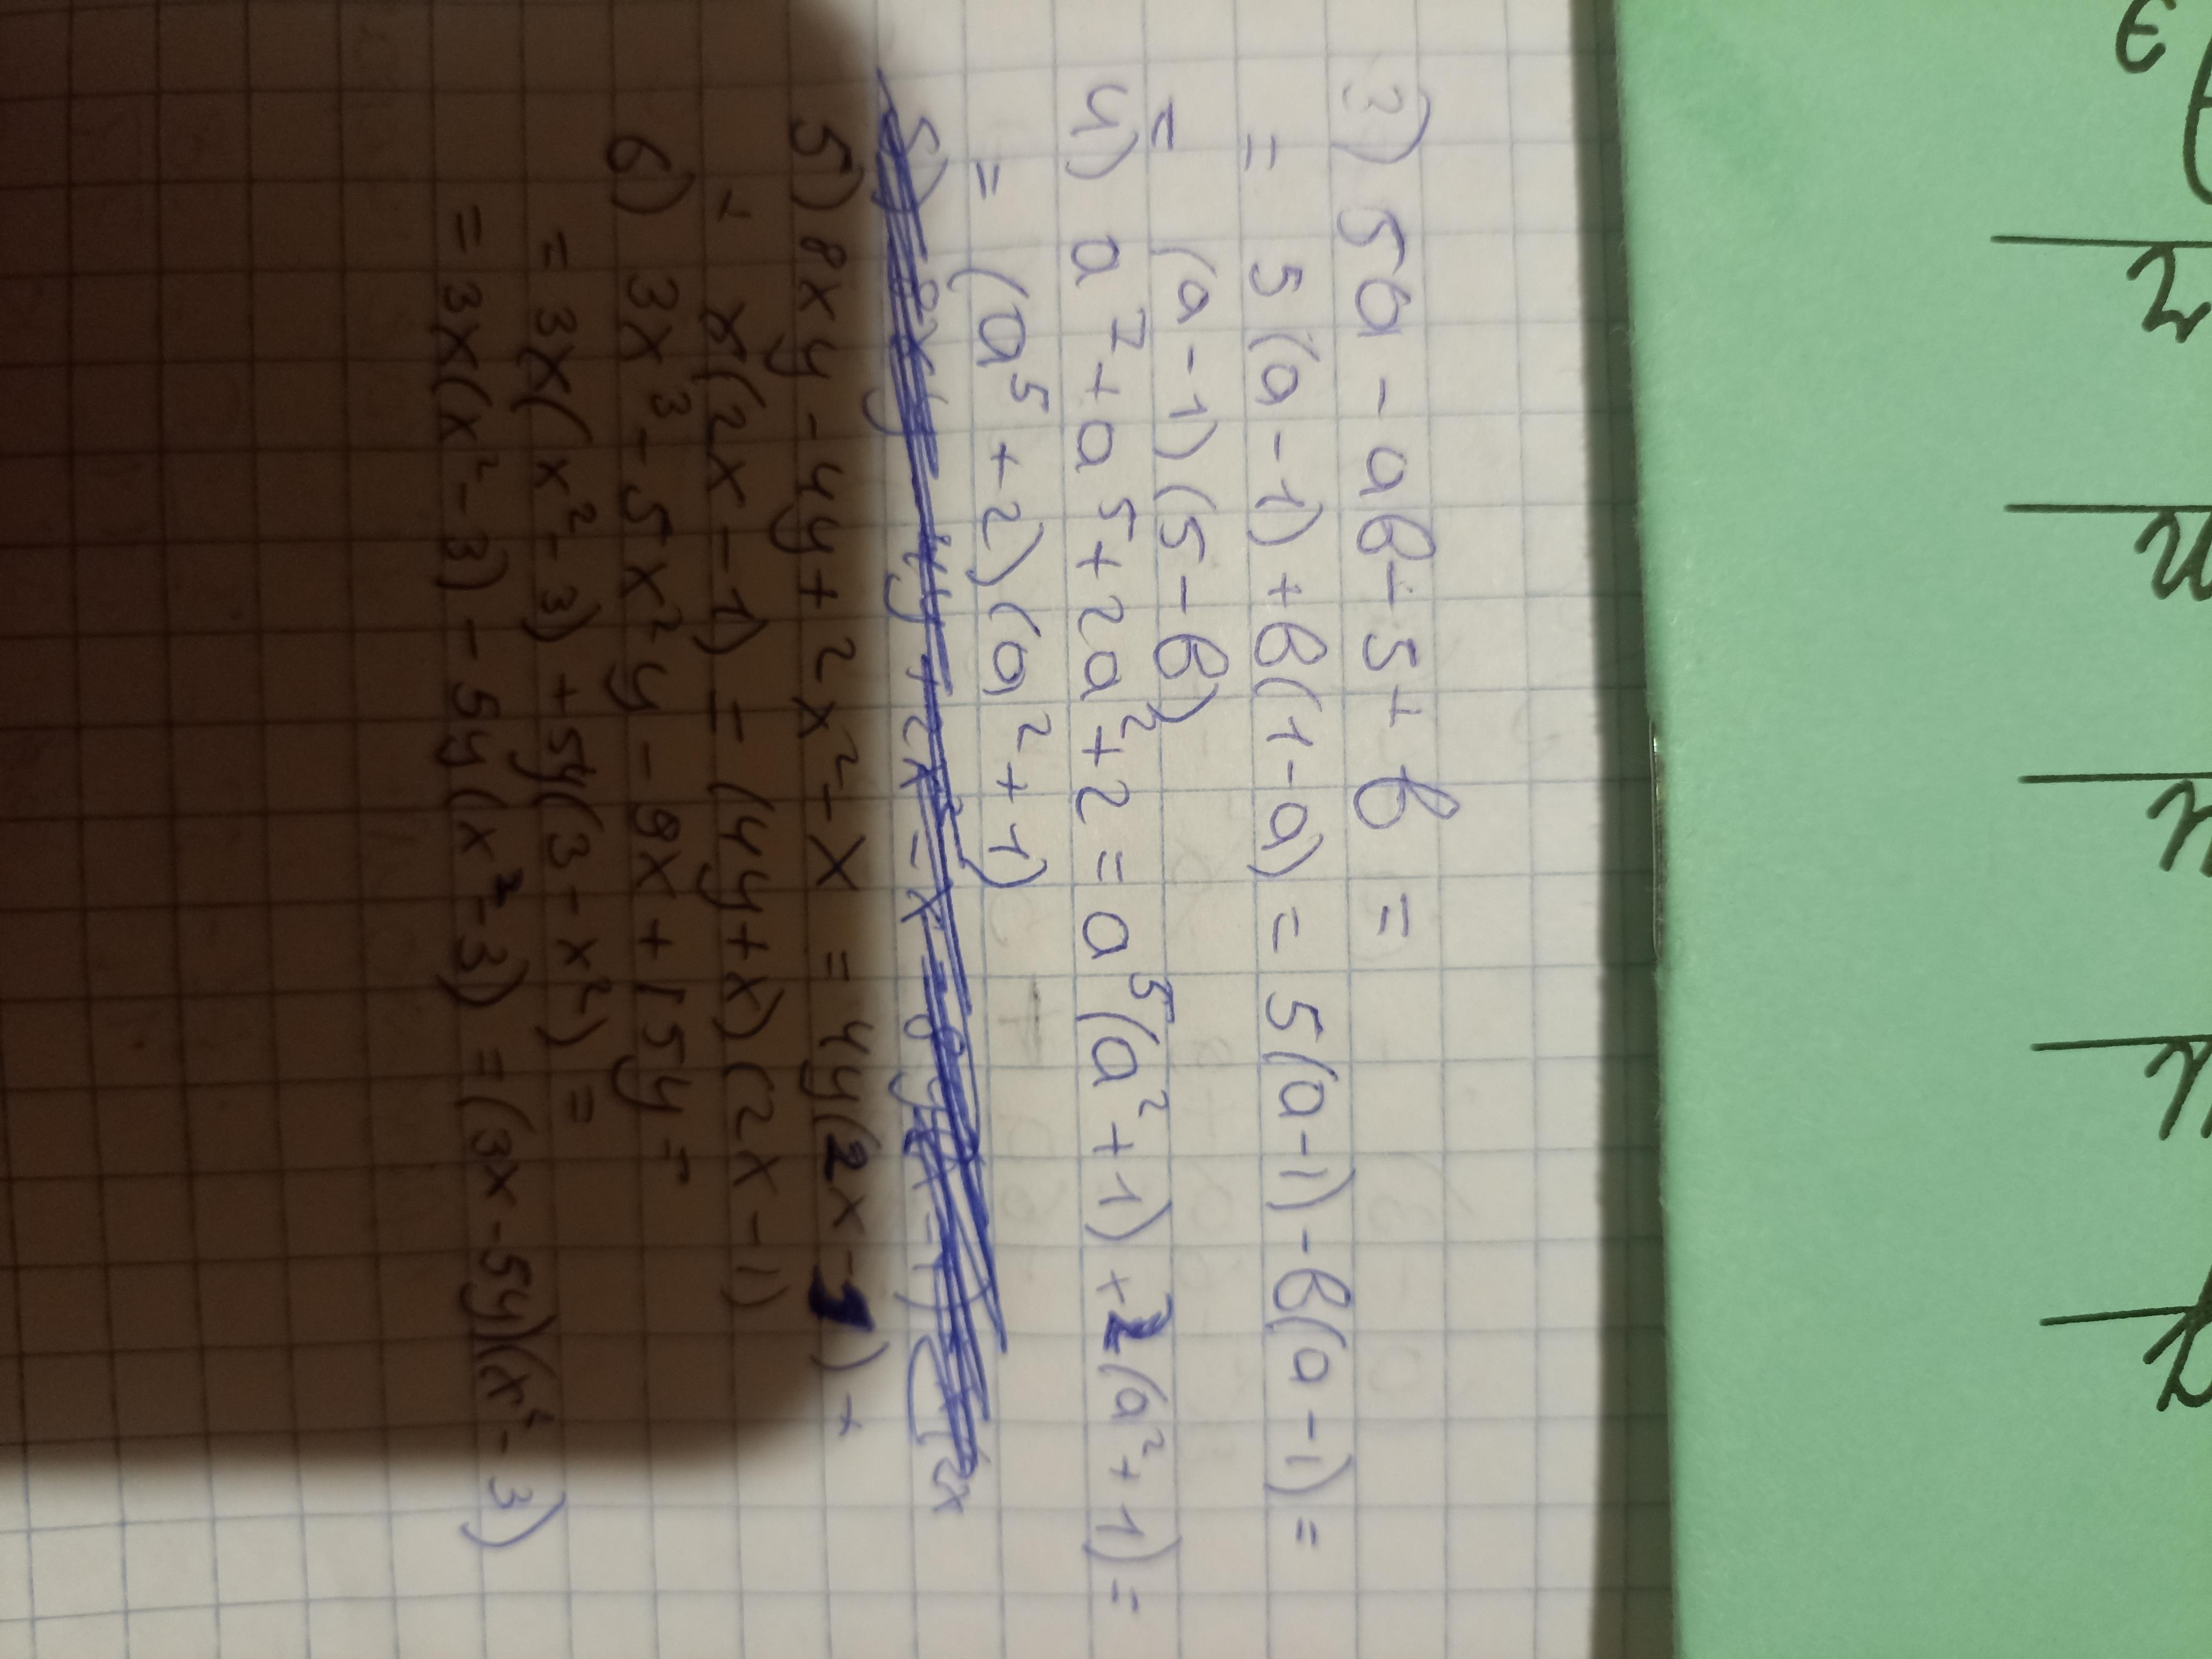 3) 5a - ab - 5 + b =
= 5(a - 1) + b(1 - a) = 5(a - 1) - b(a - 1) =
= (a - 1)(5 - b)
4) a⁷ + a⁵ + 2a² + 2 = a⁵(a² + 1) + 2(a² + 1) =
= (a⁵ + 2)(a² + 1)
5) 8xy - 4y + 2x² - x = 4y(2x - 1) +
+ x(2x - 1) = (4y + x)(2x - 1)
6) 3x³ - 5x²y - 9x + 15y =
= 3x(x² - 3) + 5y(3 - x²) =
= 3x(x² - 3) - 5y(x² - 3) = (3x - 5y)(x² - 3)